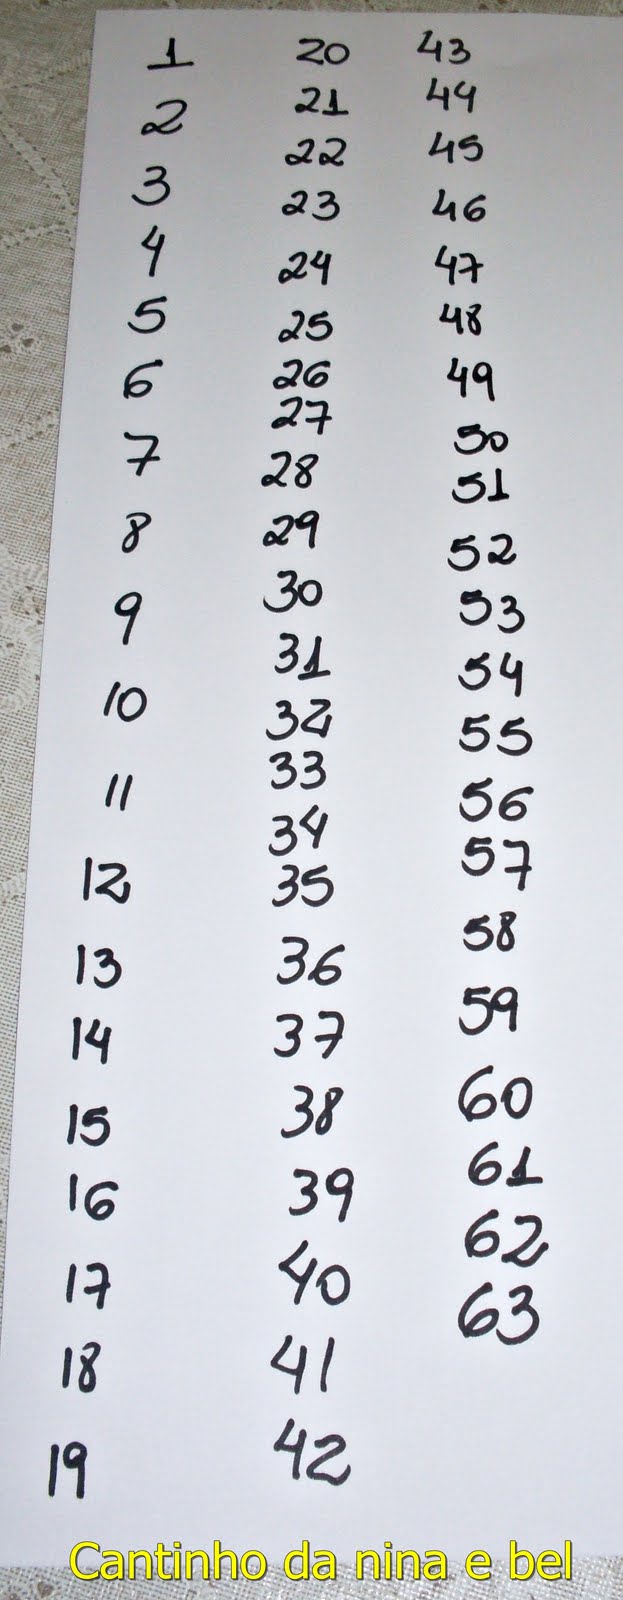 1
2
3
4
5
6
7
8
9
10
11
12
13
14
15
16
17
18
19
20
21
22
23
24
25
26
27
28
29
30
31
32
33
34
35
36
37
38
39
40
41
42
43
44
45
46
47
48
49
50
51
52
53
54
55
56
57
58
59
60
61
62
63
Cantinho da nina e bel